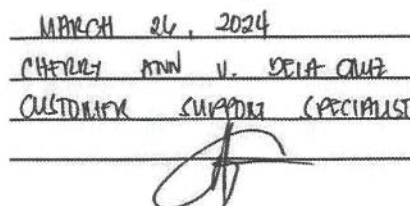 MARCH 26, 2024
CHERRY ANN V. DELA CRUZ
CUSTOMER SUPPORT SPECIALIST